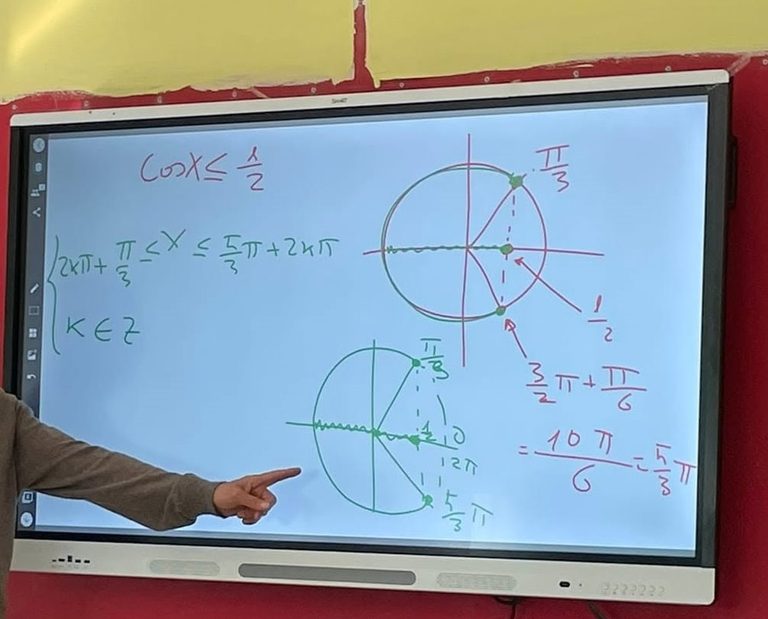 cos x ≤ 1/2
2kπ + π/3 ≤ x ≤ 5/3 π + 2kπ
k ∈ Z
π/3
1/2
3/2 π + π/6
= 10π/6 = 5/3 π
π/3
1/2
0
2π
5/3 π